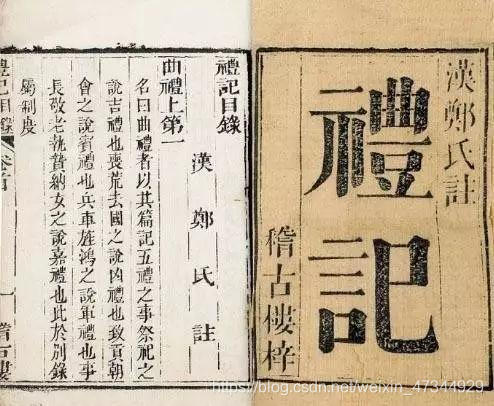 漢鄭氏註
禮記
稽古樓梓
禮記目錄
漢鄭氏註
曲禮上第一
名曰曲禮者以其篇記五禮之事祭祀之
說吉禮也喪荒去國之說凶禮也致貢朝
會之說賓禮也兵車旌鴻之說軍禮也事
長敬老執贄納女之說嘉禮也此於別錄
屬制度
禮記目錄
一
稽古樓
https://blog.csdn.net/weixin_47344929